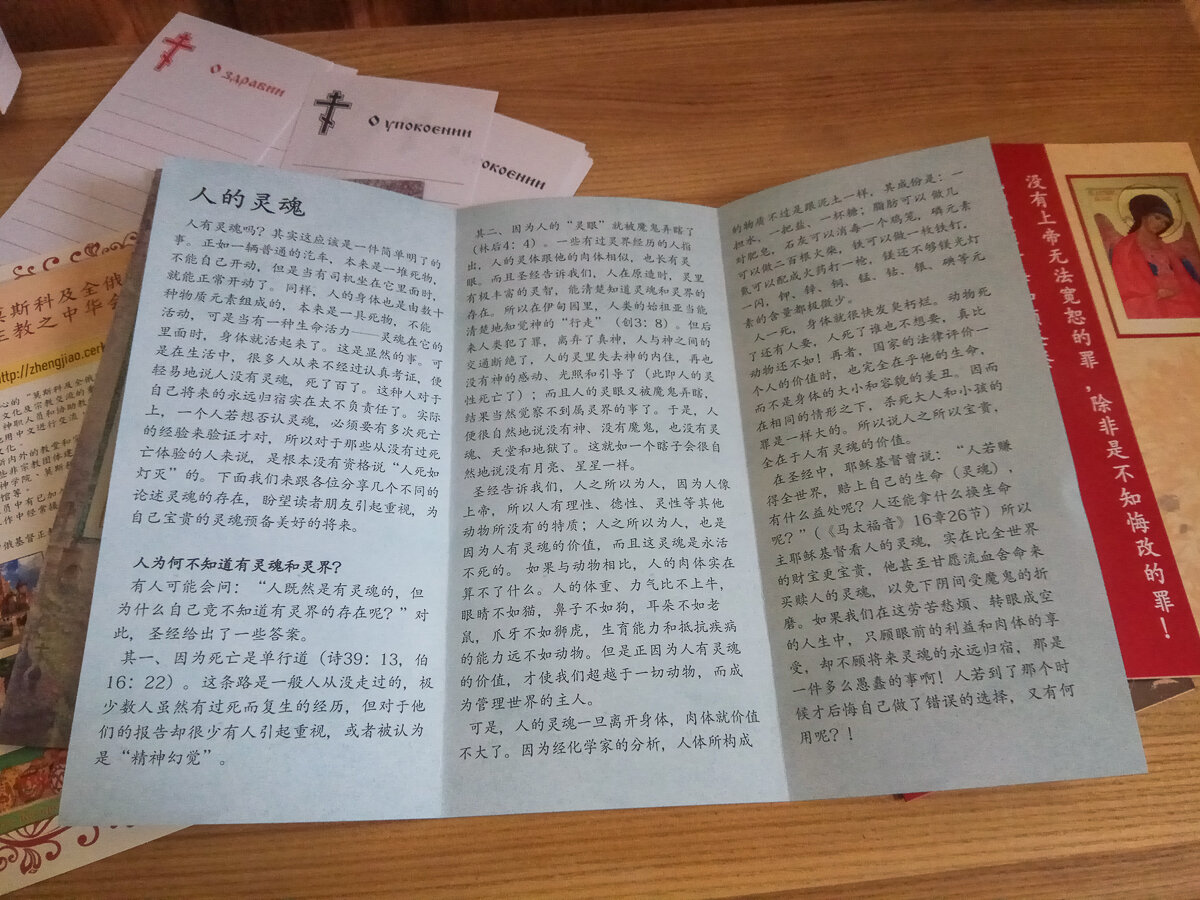 О здравии
О упокоении
покоении
莫斯科及全俄
主教之中华会
http://zhengjiao.cerk
人的灵魂
人有灵魂吗？其实这应该是一件简单明了的
事。正如一辆普通的汽车，本来是一堆死物，
不能自己开动，但是当有司机坐在它里面时，
就能正常开动了。同样，人的身体也是由数十
种物质元素组成的，本来是一具死物，不能
活动，可是当有一种生命活力——灵魂在它的
里面时，身体就活起来了。这是显然的事。可
是在生活中，很多人从来不经过认真考证，便
轻易地说人没有灵魂，死了百了。这种人对于
自己将来的永远归宿实在太不负责任了。实际
上，一个人若想否认灵魂，必须要有多次死亡
的经验来验证才对，所以对于那些从没有过死
亡体验的人来说，是根本没有资格说“人死如
灯灭”的。下面我们来跟各位分享几个不同的
论述灵魂的存在，盼望读者朋友引起重视，为
自己宝贵的灵魂预备美好的将来。
人为何不知道有灵魂和灵界？
有人可能会问：“人既然是有灵魂的，但
为什么自己竟不知道有灵界的存在呢？”对
此，圣经给出了一些答案。
其一、因为死亡是单行道（诗39：13，伯
16：22）。这条路是一般人从没走过的，极
少数人虽然有过死而复生的经历，但对于他
们的报告却很少有人引起重视，或者被认为
是“精神幻觉”。
其二、因为人的“灵眼”就被魔鬼弄瞎了
（林后4：4）。一些有过灵界经历的人指
出，人的灵体跟他的肉体相似，也长有灵
眼。而且圣经告诉我们，人在原造时，灵里
有极丰富的灵智，能清楚地知道灵魂和灵界的
存在。所以在伊甸园里，人类的始祖亚当能
清楚地知觉神的“行走”（创3：8）。但后
来人类犯了罪，离弃了真神，人与神之间的
交通断绝了，人的灵里失去神的内住，再也
没有神的感动、光照和引导了（此即人的灵
性死亡了）；而且人的灵眼又被魔鬼弄瞎，
结果当然觉察不到属灵界的事了。于是，人
便很自然地说没有神、没有魔鬼，也没有灵
魂、天堂和地狱了。这就如一个瞎子会很自
然地说没有月亮、星星一样。
圣经告诉我们，人之所以为人，因为人像
上帝，所以人有理性、德性、灵性等其他
动物所没有的特质；人之所以为人，也是
因为人有灵魂的价值，而且这灵魂是永活
不死的。如果与动物相比，人的肉体实在
算不了什么。人的体重、力气比不上牛，
眼睛不如猫，鼻子不如狗，耳朵不如老
鼠，爪牙不如狮虎，生育能力和抵抗疾病
的能力远不如动物。但是正因为人有灵魂
的价值，才使我们超越于一切动物，而成
为管理世界的主人。
可是，人的灵魂一旦离开身体，肉体就价值
不大了。因为经化学家的分析，人体所构成
的物质不过是跟泥土一样，其成份是：一
担水，一把盐，一杯糖；脂肪可以做几
块肥皂，石灰可以消毒一个鸡笼，磷元素
可以做二百根火柴，铁可以做一枚铁钉，
氮可以配成火药打一枪，镁还不够镁光灯
一闪，钾、锌、铜、锰、钴、银、碘等元
素的含量都极微少。
人一死，身体就很快发臭朽烂。动物死
了还有人要，人死了谁也不想要，真比
动物还不如！再者，国家的法律评价一
个人的价值时，也完全在乎他的生命，
而不是身体的大小和容貌的美丑。因而
在相同的情形之下，杀死大人和小孩的
罪是一样大的。所以说人之所以宝贵，
全在于人有灵魂的价值。
在圣经中，耶稣基督曾说：“人若赚
得全世界，赔上自己的生命（灵魂），
有什么益处呢？人还能拿什么换生命
呢？”（《马太福音》16章26节）所以
主耶稣基督看人的灵魂，实在比全世界
的财宝更宝贵，他甚至甘愿流血舍命来
买赎人的灵魂，以免下阴间受魔鬼的折
磨。如果我们在这劳苦愁烦、转眼成空
的人生中，只顾眼前的利益和肉体的享
受，却不顾将来灵魂的永远归宿，那是
一件多么愚蠢的事啊！人若到了那个时
候才后悔自己做了错误的选择，又有何
用呢？！
没有上帝无法宽恕的罪，除非是不知悔改的罪！